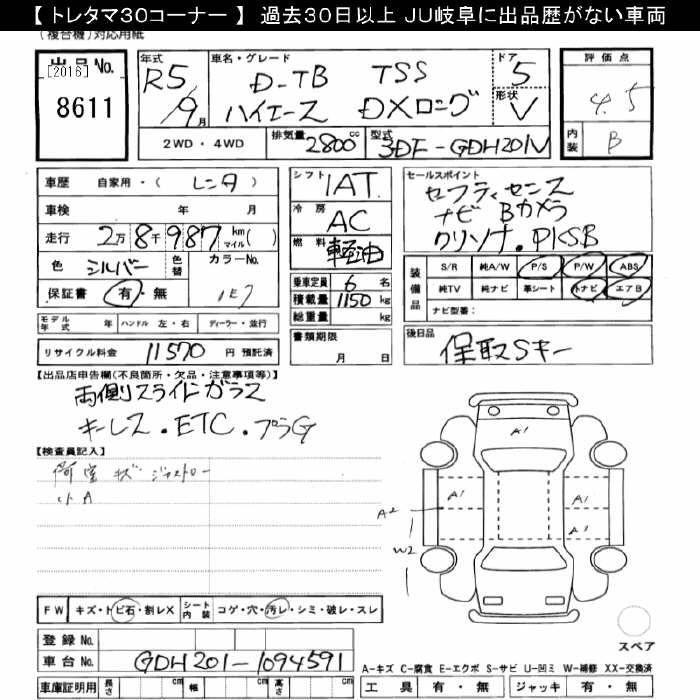 【 トレタマ30コーナー 】 過去30日以上 JU岐阜に出品歴がない車両
(複合機)対応用紙
出品No.
[2016]
8611
年式 車名・グレード ドア
R5 D-TB TSS 5
9月 ハイエース DXロング 形状 V
2WD・4WD 排気量 2800cc 型式 3DF-GDH201V
評価点
4.5
内装 B
車歴 自家用・( レンタ )
車検 年 月
走行 2万8千987 km マイル( )
色 シルバー 色替 カラーNo.
保証書 有・無 1E7
モデル年式 年 ハンドル 左・右 ディーラー・並行
リサイクル料金 11570 円 預託済
シフト 1AT
冷房 AC
燃料 軽油
乗車定員 6 名
積載量 1150 kg
総重量 kg
書類期限
月 日
セールスポイント
セーフティセンス
ナビ Bカメラ
クリソナ.PKSB
装備品 S/R 純A/W P/S P/W ABS
純TV 純ナビ 革シート トナビ エアB
ナビ型番:
後日品
保取Sキー
【出品店申告欄(不良箇所・欠品・注意事項等)】
両側スライドガラス
キーレス.ETC.プラG
【検査員記入】
荷室キズ
小A
A1
A1 A1
A2
A1
W2
FW キズ・トビ石・割レX シート内装 コゲ・穴・汚レ・シミ・破レ・スレ
登録No.
車台No. GDH201-1094591
車庫証明用 長さ cm 幅 cm 高さ cm
スペア
A-キズ C-腐食 E-エクボ S-サビ U-凹ミ W-補修 XX-交換済
工具 有・無 ジャッキ 有・無